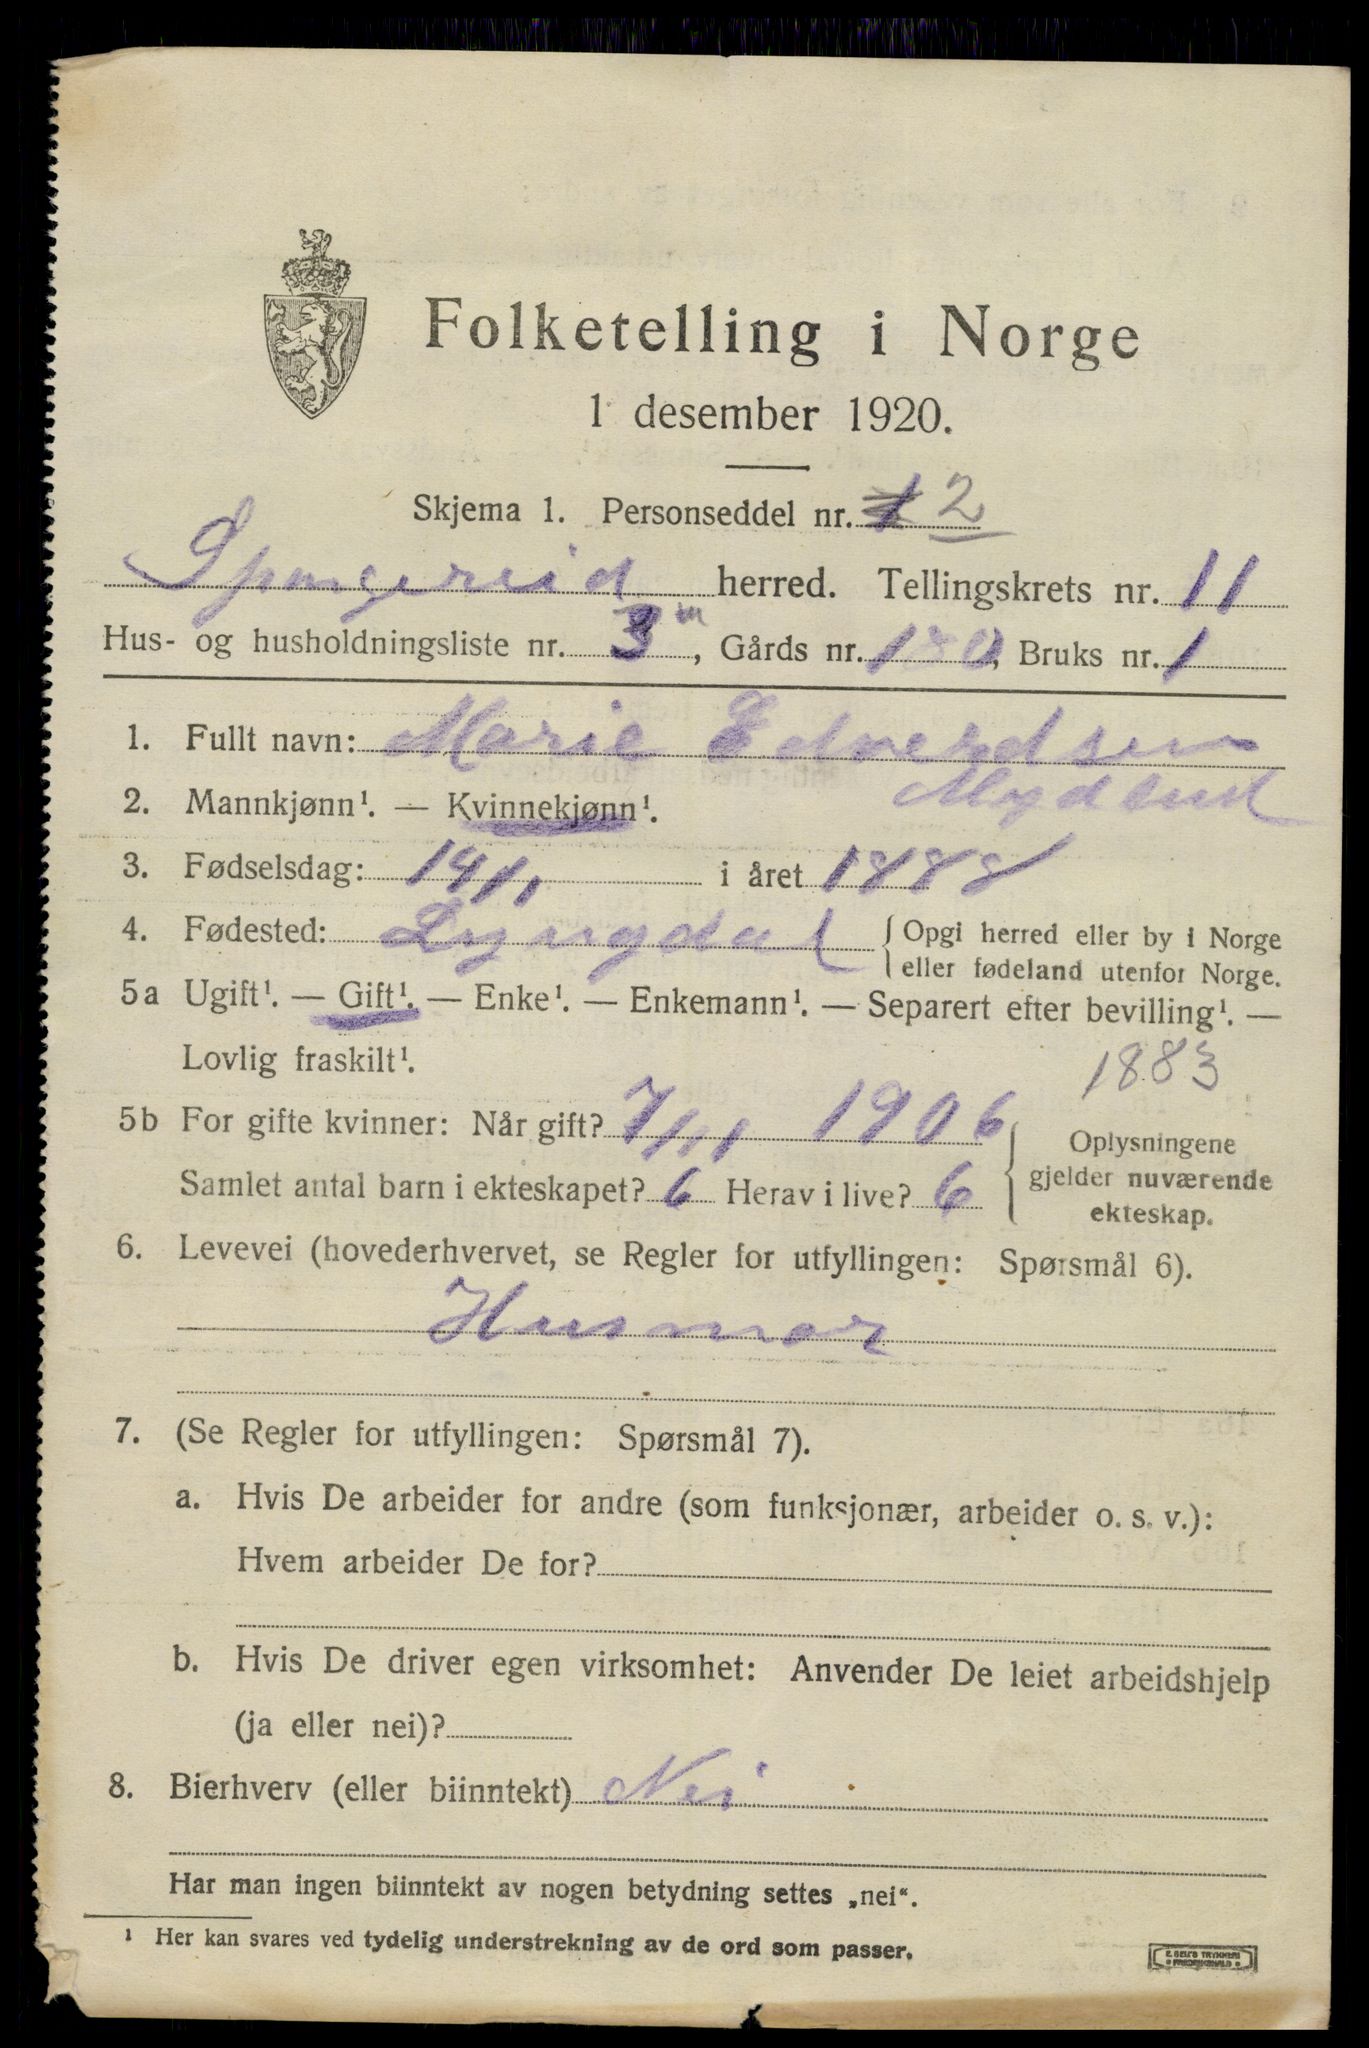 Folketelling i Norge
1 desember 1920.
Skjema 1. Personseddel nr. 1 2
Spangereid herred. Tellingskrets nr. 11
Hus- og husholdningsliste nr. 3, Gårds nr. 180, Bruks nr. 1
1. Fullt navn: Marie Edverdsen
Mydlend
2. Mannkjønn¹. — Kvinnekjønn¹.
3. Fødselsdag: 14/1 i året 1888
4. Fødested: Lyngdal { Opgi herred eller by i Norge
eller fødeland utenfor Norge.
5a Ugift¹. — Gift¹. — Enke¹. — Enkemann¹. — Separert efter bevilling¹. —
Lovlig fraskilt¹.
1883
5b For gifte kvinner: Når gift? 7/11 1906
Samlet antal barn i ekteskapet? 6 Herav i live? 6
} Oplysningene
gjelder nuværende
ekteskap.
6. Levevei (hovederhvervet, se Regler for utfyllingen: Spørsmål 6).
Husmor
7. (Se Regler for utfyllingen: Spørsmål 7).
a. Hvis De arbeider for andre (som funksjonær, arbeider o. s. v.):
Hvem arbeider De for?
b. Hvis De driver egen virksomhet: Anvender De leiet arbeidshjelp
(ja eller nei)?
8. Bierhverv (eller biinntekt) Nei
Har man ingen biinntekt av nogen betydning settes „nei".
¹ Her kan svares ved tydelig understrekning av de ord som passer.
E. SEM'S TRYKKERI
FREDRIKSHALD